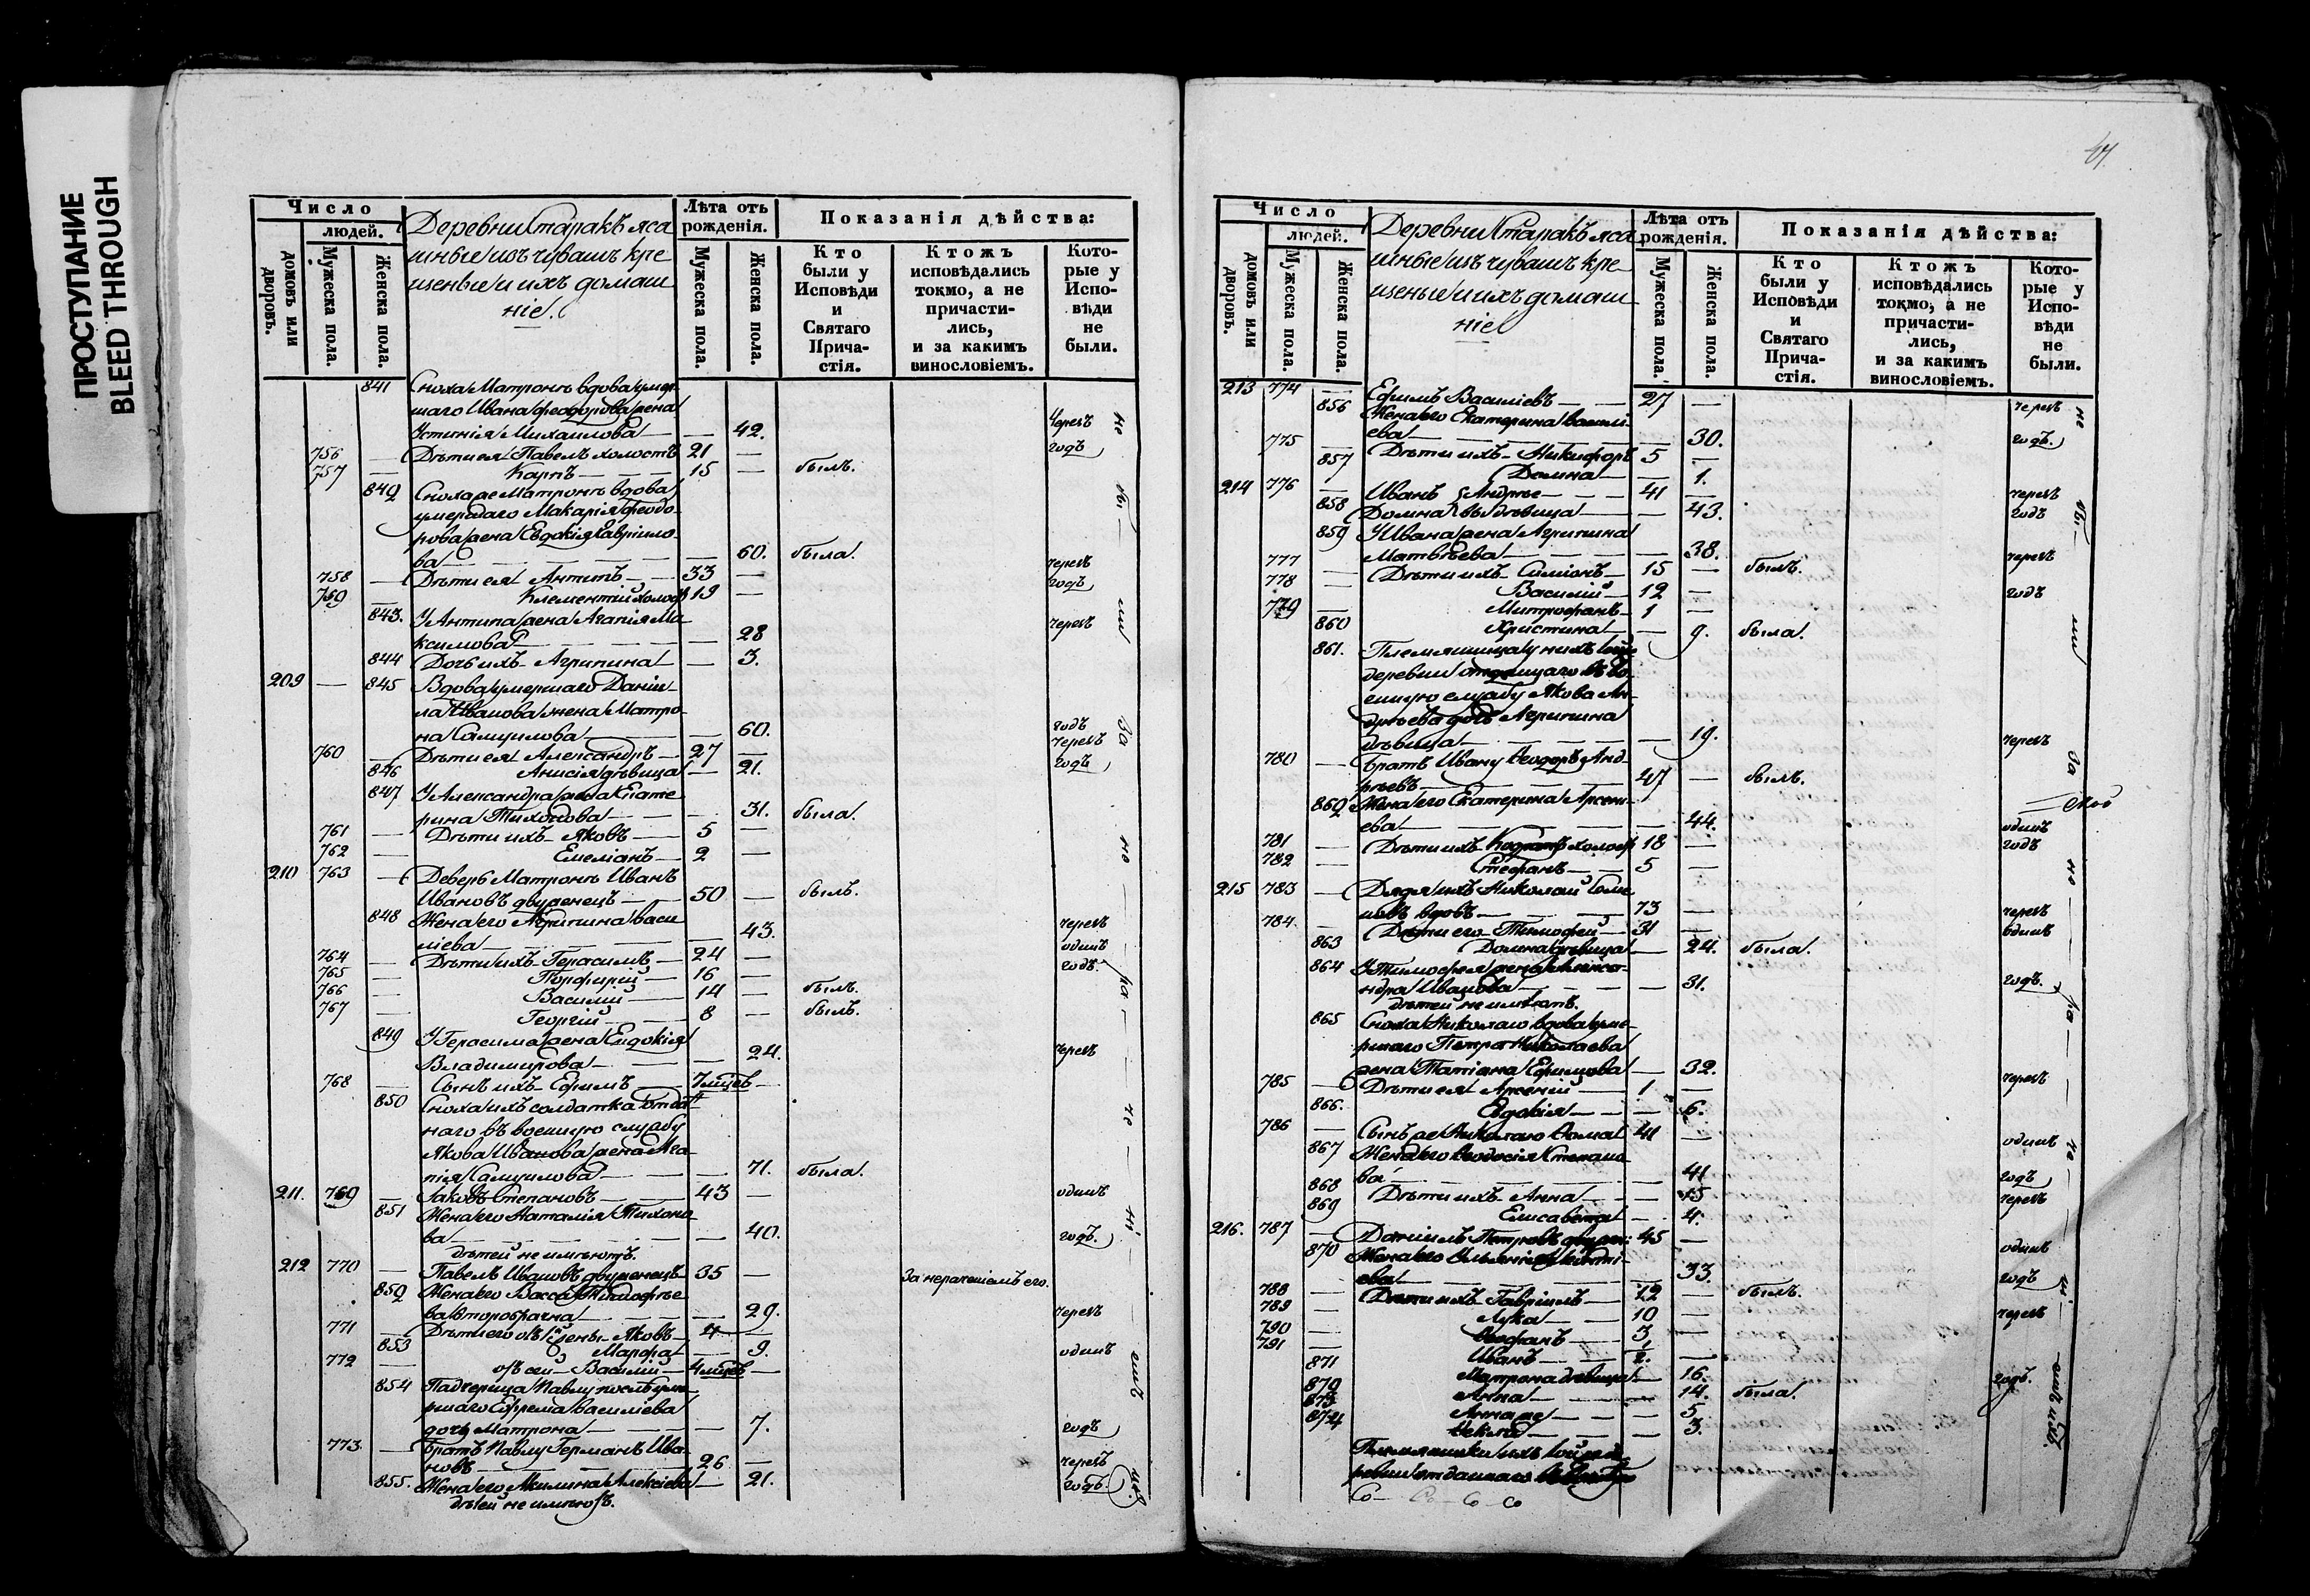 ПРОСТУПАНИЕ
BLEED THROUGH
Число
людей.
домовъ или дворовъ.
Мужеска пола.
Женска пола.
Деревни Старакъ яса
шные изъ чувашъ кре
щеные и ихъ домаш
ніе.
Лѣта отъ рожденія.
Мужеска пола.
Женска пола.
Показанія дѣйства:
Кто были у Исповѣди и Святаго Прича- стія.
Ктожъ исповѣдались токмо, а не причасти- лись, и за какимъ винословіемъ.
Кото- рые у Испо- вѣди не были.
841 Сноха Матронѣ вдова умер-
шаго Ивана Феодорова жена
Устинія Михаилова — — 42. Чрезъ
756 — Дѣти ея Павелъ холостъ 21 — годъ
757 — Карпъ — 15 — былъ.
842 Сноха же Матронѣ вдова
умершаго Макарія Феодо-
рова жена Евдокія Гавріило-
ва — — 60. была.
черезъ
758 — Дѣти ея Антипъ — 33 — годъ
759 — Климентій холостъ 19 —
843. У Антипа жена Агапія Ма
ксимова — — 28 черезъ
844 Дочь ихъ Агрипина — — 3.
209 — 845 Вдова умершаго Даніи-
ла Иванова жена Матро-
на Самуилова — — 60. годъ
черезъ
760 — Дѣти ея Александръ — 27 — годъ
846 Анисія дѣвица — 21.
847 У Александра жена Екате
рина Тихонова — — 31. была.
761 — Дѣти ихъ Яковъ — 5 —
762 — Емеліанъ — 2 —
210 763 — Деверь Матронѣ Иванъ
Ивановъ двуженецъ — 50 — былъ.
848 Жена его Агрипина Васи
ліева — — 43. черезъ
одинъ
764 — Дѣти ихъ Герасимъ — 24 —
765 — Порфирій — 16 — годъ.
766 — Василій — 14 — былъ.
767 — Георгій — 8 — былъ.
849 У Герасима жена Евдокія
Владимирова — — 24. черезъ
768 — Сынъ ихъ Ефимъ — 7 мцевъ —
850 Сноха ихъ солдатка отдан
наго въ военную службу
Якова Иванова жена Ага
пія Самуилова — — 71. была.
211. 769 — Іаковъ Степановъ — 43 — одинъ
851 Жена его Наталія Тихоно
ва — — 40. годъ.
дѣтей не имѣютъ.
212 770 — Павелъ Ивановъ двуженецъ 35 — За нерачениемъ его.
852 Жена его Васса Тимофѣе
ва второбрачна — — 29. черезъ
771 — Дѣти его отъ 1й жены Яковъ 4 —
853 Марфа — 9. одинъ
772 — отъ сей Василій — 4 мцевъ —
854 Падчерица Павлу послѣ уме
ршаго Ефрема Василіева
дочь Матрона — — 7. годъ
773. — Братъ Павлу Германъ Ива
новъ — 26 — черезъ
855. Жена его Акилина Алексіева — 21. годъ.
дѣтей не имѣютъ.
Число
людей.
домовъ или дворовъ.
Мужеска пола.
Женска пола.
Деревни Старакъ яса
шные изъ чувашъ кре
щеные и ихъ домаш
ніе
Лѣта отъ рожденія.
Мужеска пола.
Женска пола.
Показанія дѣйства:
Кто были у Исповѣди и Святаго Прича- стія.
Ктожъ исповѣдались токмо, а не причасти- лись, и за какимъ винословіемъ.
Кото- рые у Испо- вѣди не были.
213 774 — Ефимъ Василіевъ — 27 — черезъ
856 Жена его Екатерина Василі
ева — — 30. годъ.
775 — Дѣти ихъ Никифоръ 5 —
857 Домна — 1.
214 776 — Иванъ Андрѣе — 41 — черезъ
858 Домна вы дѣвица — 43. годъ
859 У Ивана жена Агрипина
Матвѣева — — 38. черезъ
777 — Дѣти ихъ Симіонъ — 15 — былъ.
778 — Василій — 12 — годъ
779 — Митрофанъ — 1 —
860 Христина — 9. была.
861. Племянница у нихъ той же
деревни отданнаго въ во
енную службу Якова Ан
дрѣева дочь Агрипина
дѣвица — — 19. черезъ
780 — Братъ Ивану Феодоръ Анд
рѣевъ — 47 — былъ.
862 Жена его Екатерина Арсени
ева — — 44. одинъ
781 — Дѣти ихъ холостъ 18 — годъ
782 — Стефанъ — 5 —
215 783 — Дядя ихъ Николай Семе
новъ вдовъ — 73 — черезъ
784 — Дѣти его Тимофей — 31 — одинъ
863 Домна дѣвица — 24. была.
864 У Тимофея жена Алекса
ндра Иванова — — 31. годъ.
дѣтей не имѣютъ.
865 Сноха Николаю вдова уме-
ршаго Петра Николаева
жена Татіана Ефимова — 32. черезъ
785 — Дѣти ея Арсеній — 1 —
866. Евдокія — — 6.
786 — Сынъ же Николаю Фома 41 — одинъ
867 Жена его Феодосія Степано
ва — 41 годъ
868 Дѣти ихъ Анна — — 15. черезъ
869 Елисавета — 4.
216. 787 — Даніилъ Петровъ 45 — одинъ
870 Жена его
ева — 33. годъ
788 — Дѣти ихъ Гавріилъ — 12 — былъ.
789 — Лука — 10 — черезъ
790 — Феофанъ — 3 —
791 — Иванъ — 2. —
871 Матрона дѣвица — 16. годъ.
872 Анна — 14. была.
873 Анна же — — 5
874 Фекла — — 3.
Племянники ихъ той же де
ревни отданнаго